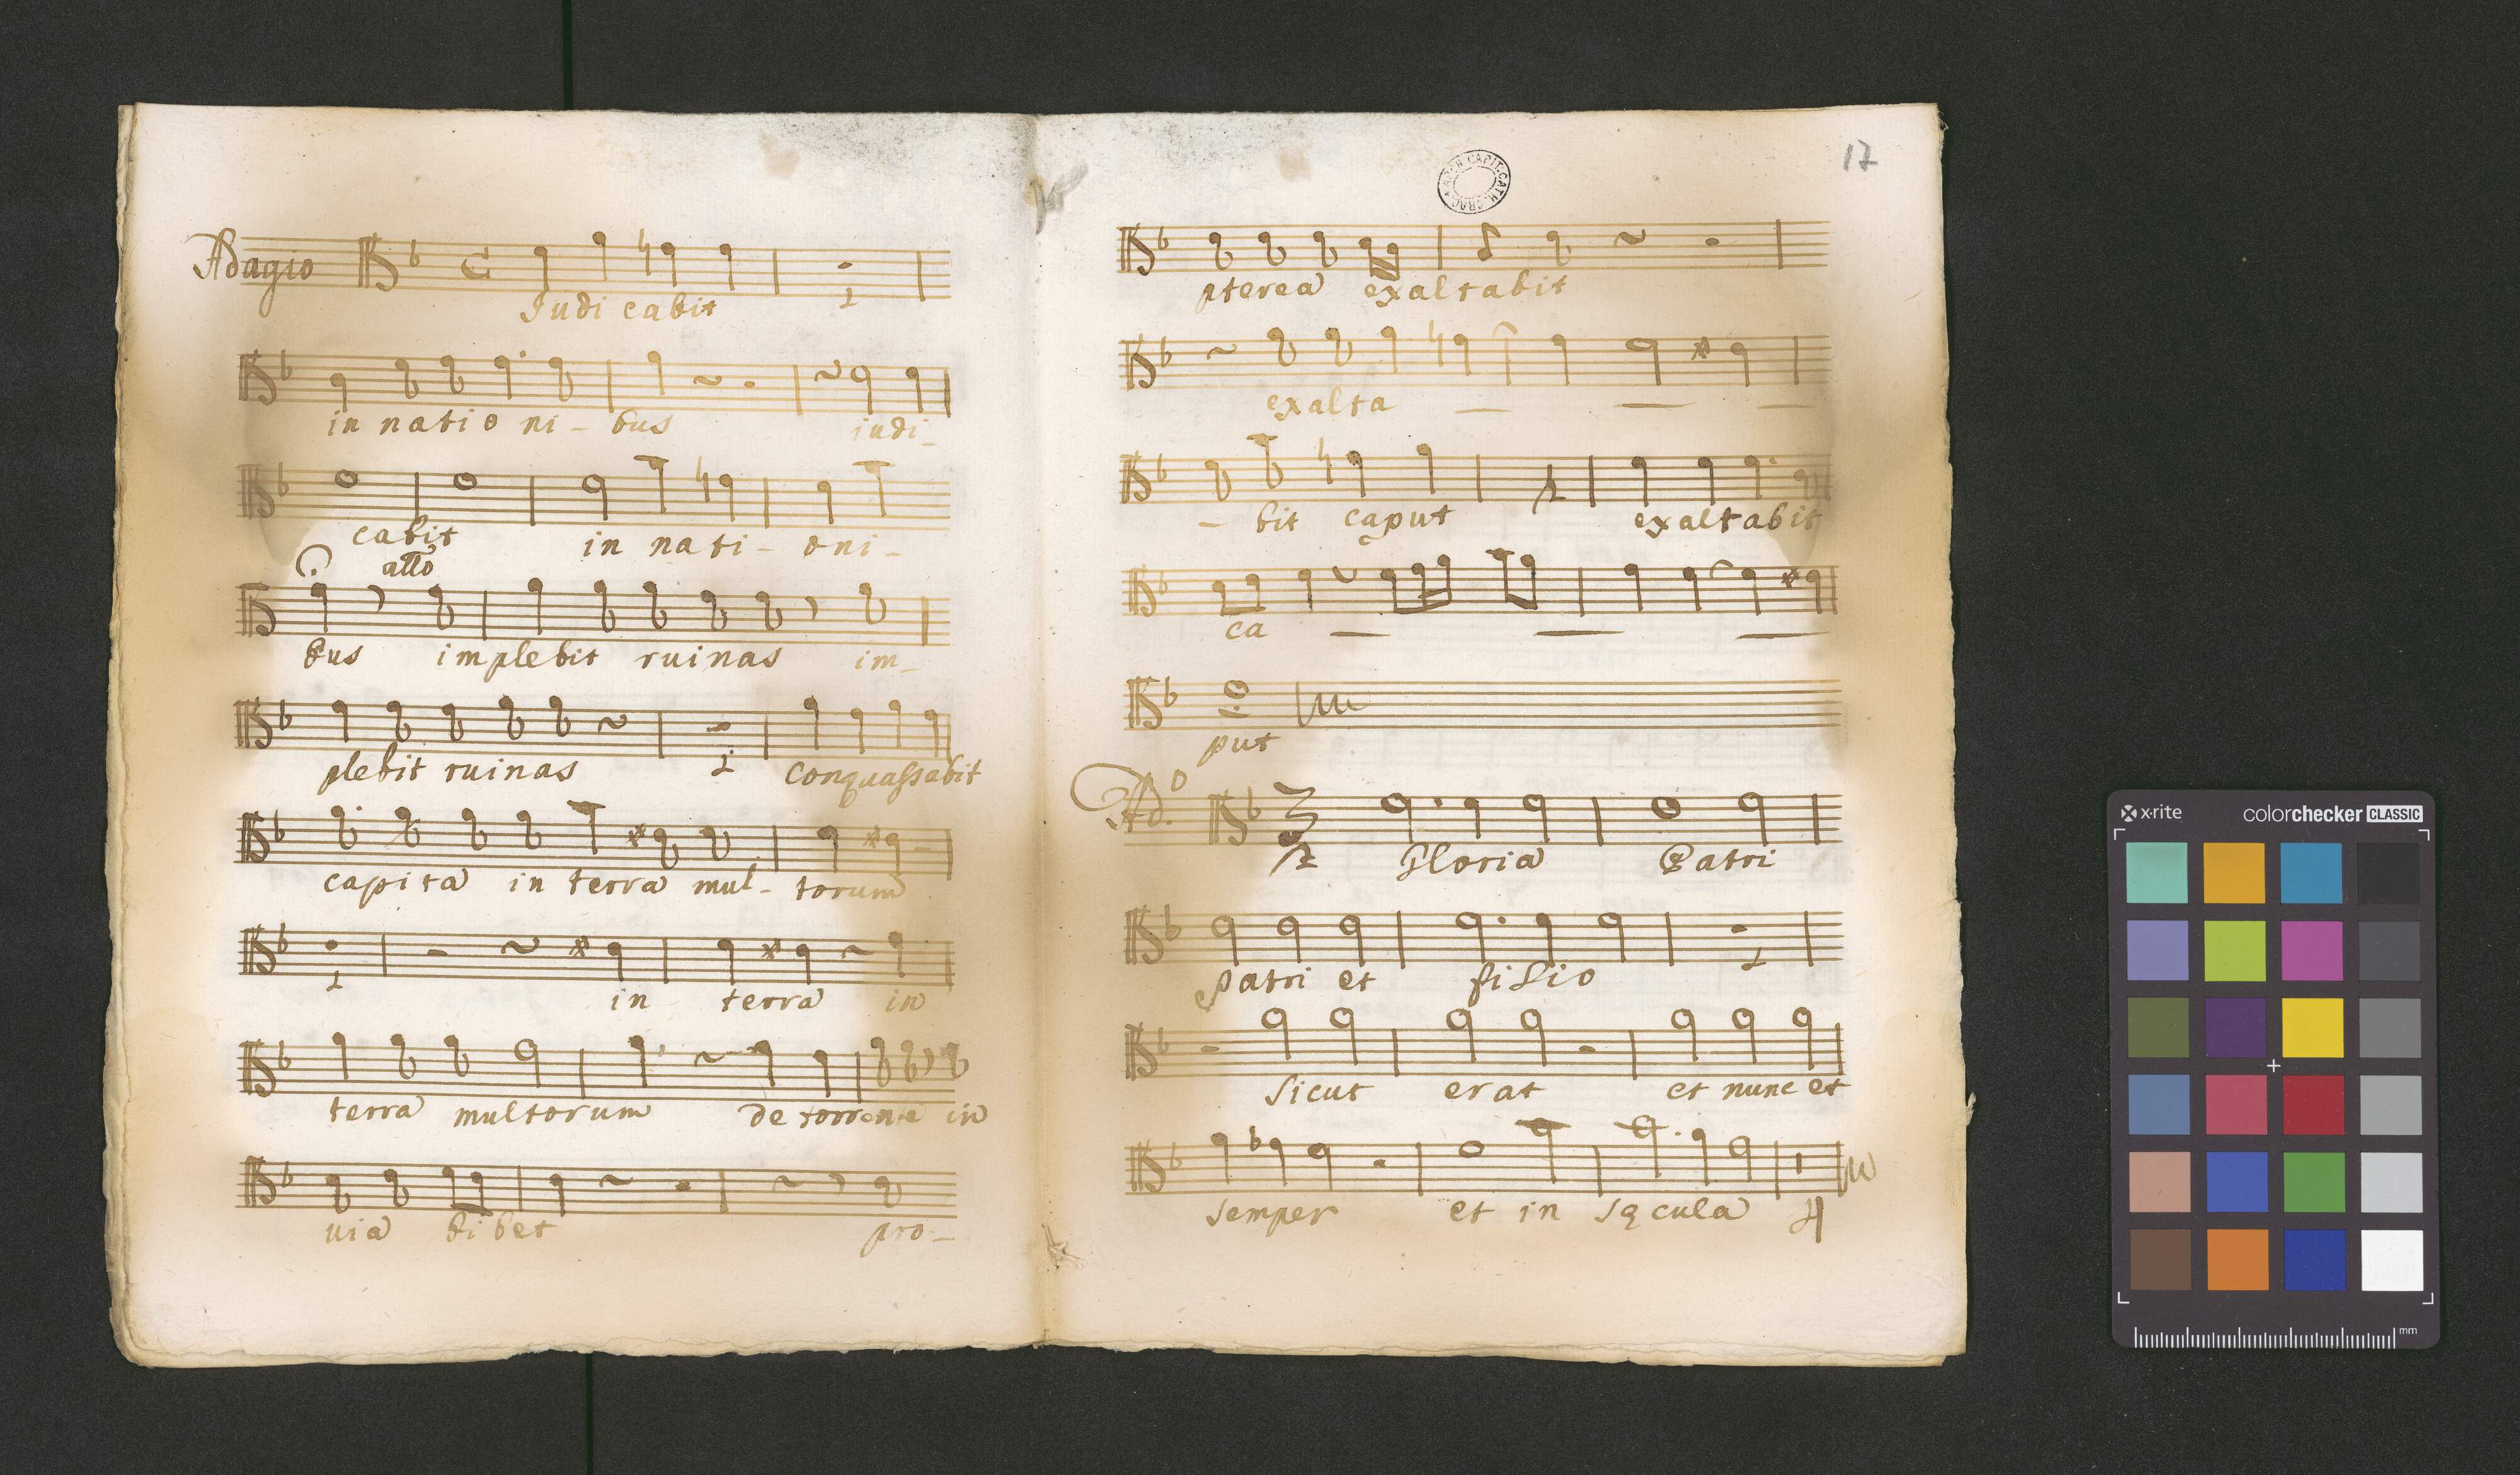 Adagio
Judi cabit 1
in natio ni - bus iudi -
cabit in nati - oni -
allo
bus implebit ruinas im -
plebit ruinas 1 conquassabit
capita in terra mul - torum
1 in terra in
terra multorum de torrente in
via bibet pro -
17
ARCH. CAPIT. CATH. CRAC.
pterea exaltabit
exalta
- bit caput 1 exaltabit
ca
put
Ado
3/2 Gloria Patri
Patri et filio 1
Sicut erat et nunc et
semper et in sęcula 4
x·rite colorchecker CLASSIC
mm